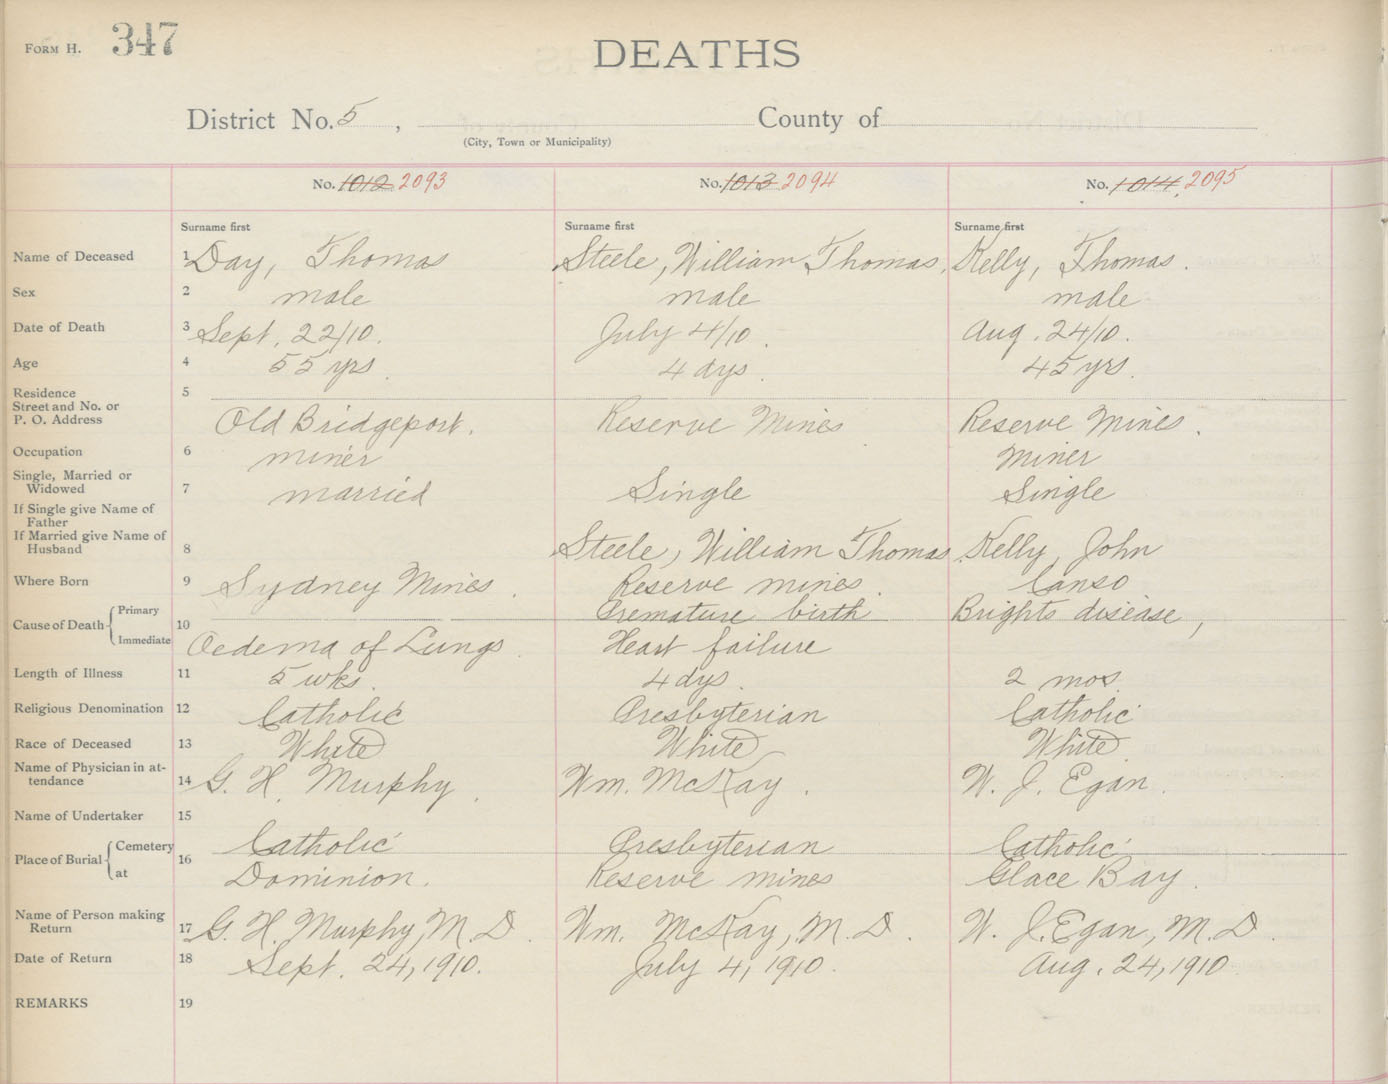 FORM H. 347
DEATHS
District No. 5, County of
(City, Town or Municipality)
No. 1012 2093 No. 1013 2094 No. 1014 2095
Surname first Surname first Surname first
Name of Deceased 1 Day, Thomas Steele, William Thomas, Kelly, Thomas.
Sex 2 male male male
Date of Death 3 Sept. 22/10. July 4/10. Aug. 24/10.
Age 4 55 yrs. 4 dys. 45 yrs.
Residence 5
Street and No. or
P. O. Address Old Bridgeport. Reserve Mines Reserve Mines.
Occupation 6 miner Miner
Single, Married or
Widowed 7 married Single Single
If Single give Name of
Father
If Married give Name of
Husband 8 Steele, William Thomas Kelly, John
Where Born 9 Sydney Mines. Reserve mines. Canso
Primary Premature birth Brights disease,
Cause of Death 10
Immediate Oedema of Lungs. Heart failure
Length of Illness 11 5 wks. 4 dys. 2 mos.
Religious Denomination 12 Catholic Presbyterian Catholic
Race of Deceased 13 White White White
Name of Physician in at-
tendance 14 G. H. Murphy. Wm. McKay. W. J. Egan.
Name of Undertaker 15
Cemetery Catholic Presbyterian Catholic
Place of Burial 16
at Dominion. Reserve mines Glace Bay.
Name of Person making
Return 17 G. H. Murphy, M. D. Wm. McKay, M. D. W. J. Egan, M. D.
Date of Return 18 Sept. 24, 1910. July 4, 1910. Aug. 24, 1910
REMARKS 19